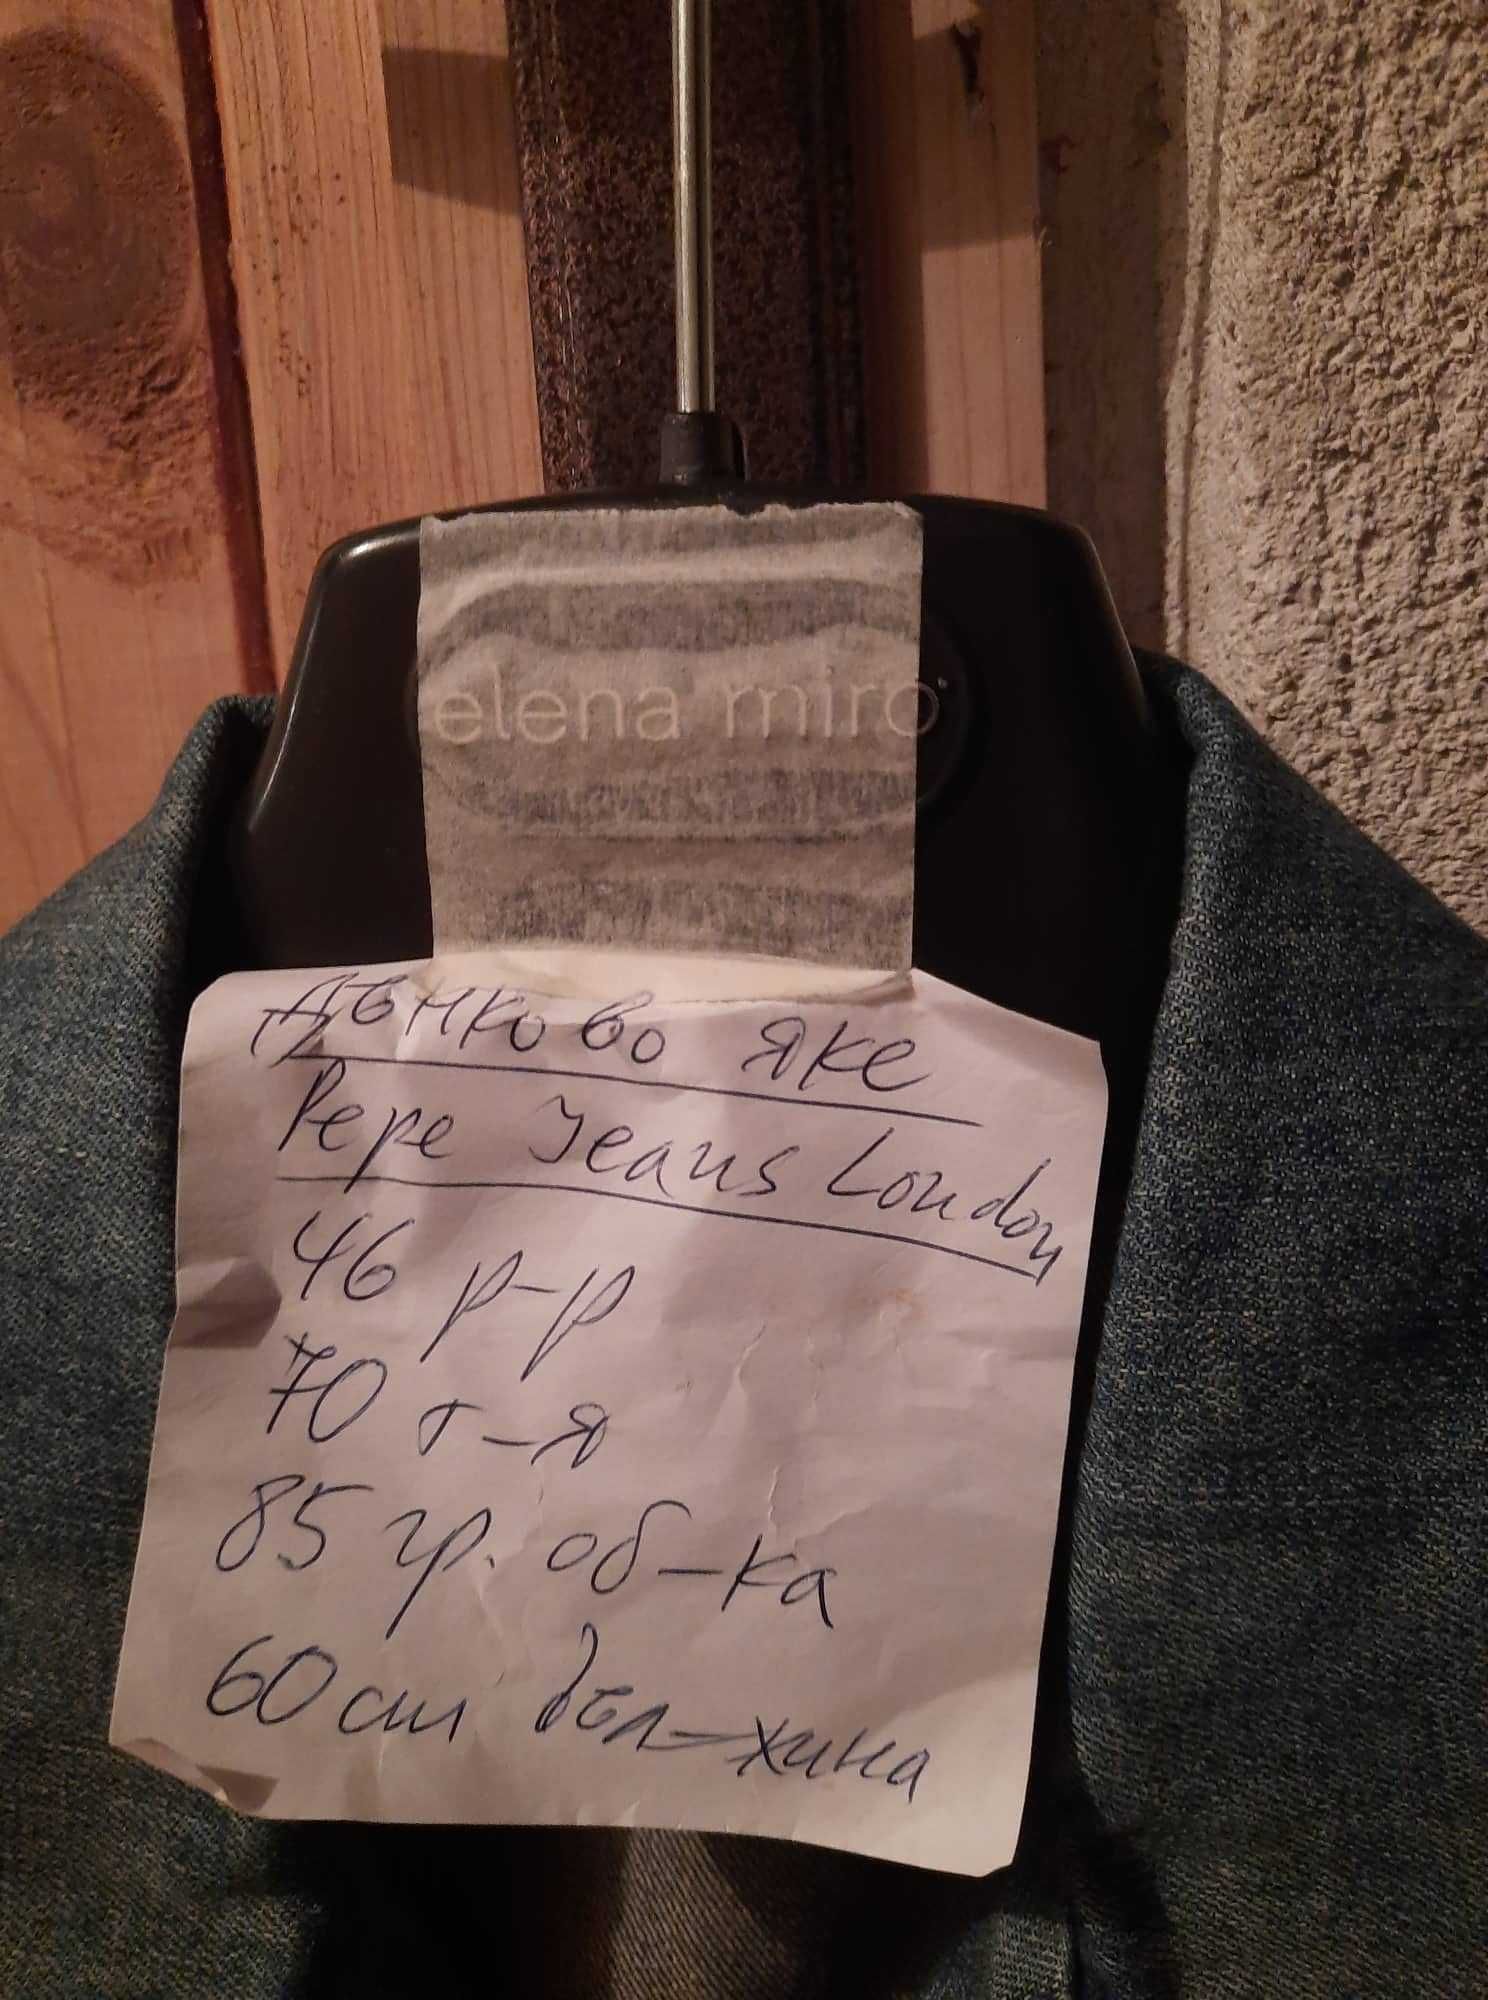 elena miro
Дънково яке
Pepe Jeans London
46 р-р
70 т-я
85 гр. об-ка
60 см дъл-жина